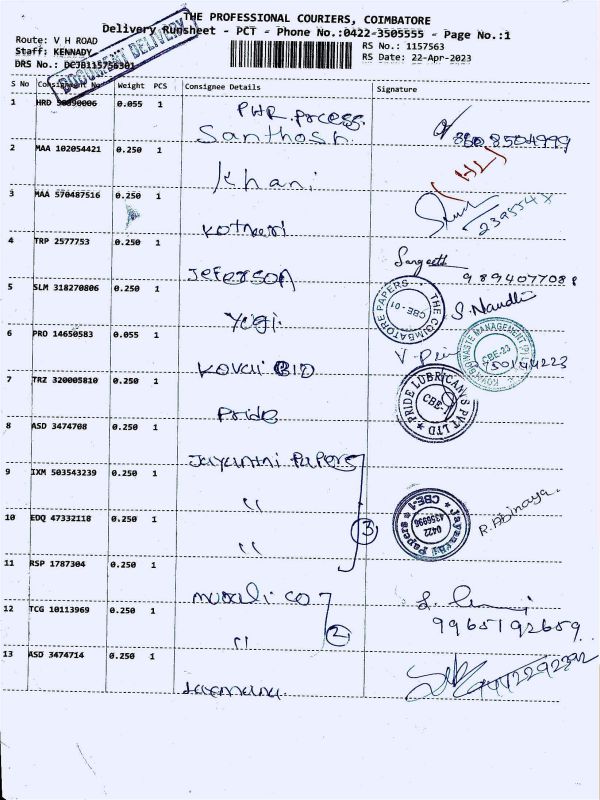 THE PROFESSIONAL COURIERS, COIMBATORE
Delivery Runsheet - PCT - Phone No.:0422-3505555 - Page No.:1
Route: V H ROAD
Staff: KENNADY
RS No.: 1157563
RS Date: 22-Apr-2023
DOCUMENT DELIVERY
S No Consignment No Weight PCS Consignee Details Signature
1 HRD 0.055 1 PHR. process
Santhosh 8508504999
2 MAA 102054421 0.250 1
Khani (HL)
3 MAA 570487516 0.250 1
Kothari
4 TRP 2577753 0.250 1 Sangeeth
Jeferson
5 SLM 318270806 0.250 1 S. Nandhi
THE COIMBATORE PAPERS CBE-01
Yogi
6 PRO 14650583 0.055 1
Kovai BIO
KOVAI BIO WASTE MANAGEMENT (P) LTD CBE-23
7 TRZ 320005810 0.250 1
Pride
PRIDE LUBRICANTS PVT LTD
8 ASD 3474708 0.250 1
Jayanthi Papers
9 IXM 503543239 0.250 1
"
10 EDQ 47332118 0.250 1 R. Abinaya
" 3
Jayanthi Papers 0422 4356996 CBE-1
11 RSP 1787304 0.250 1
Murali CO
12 TCG 10113969 0.250 1 9965192659
" 2
13 ASD 3474714 0.250 1